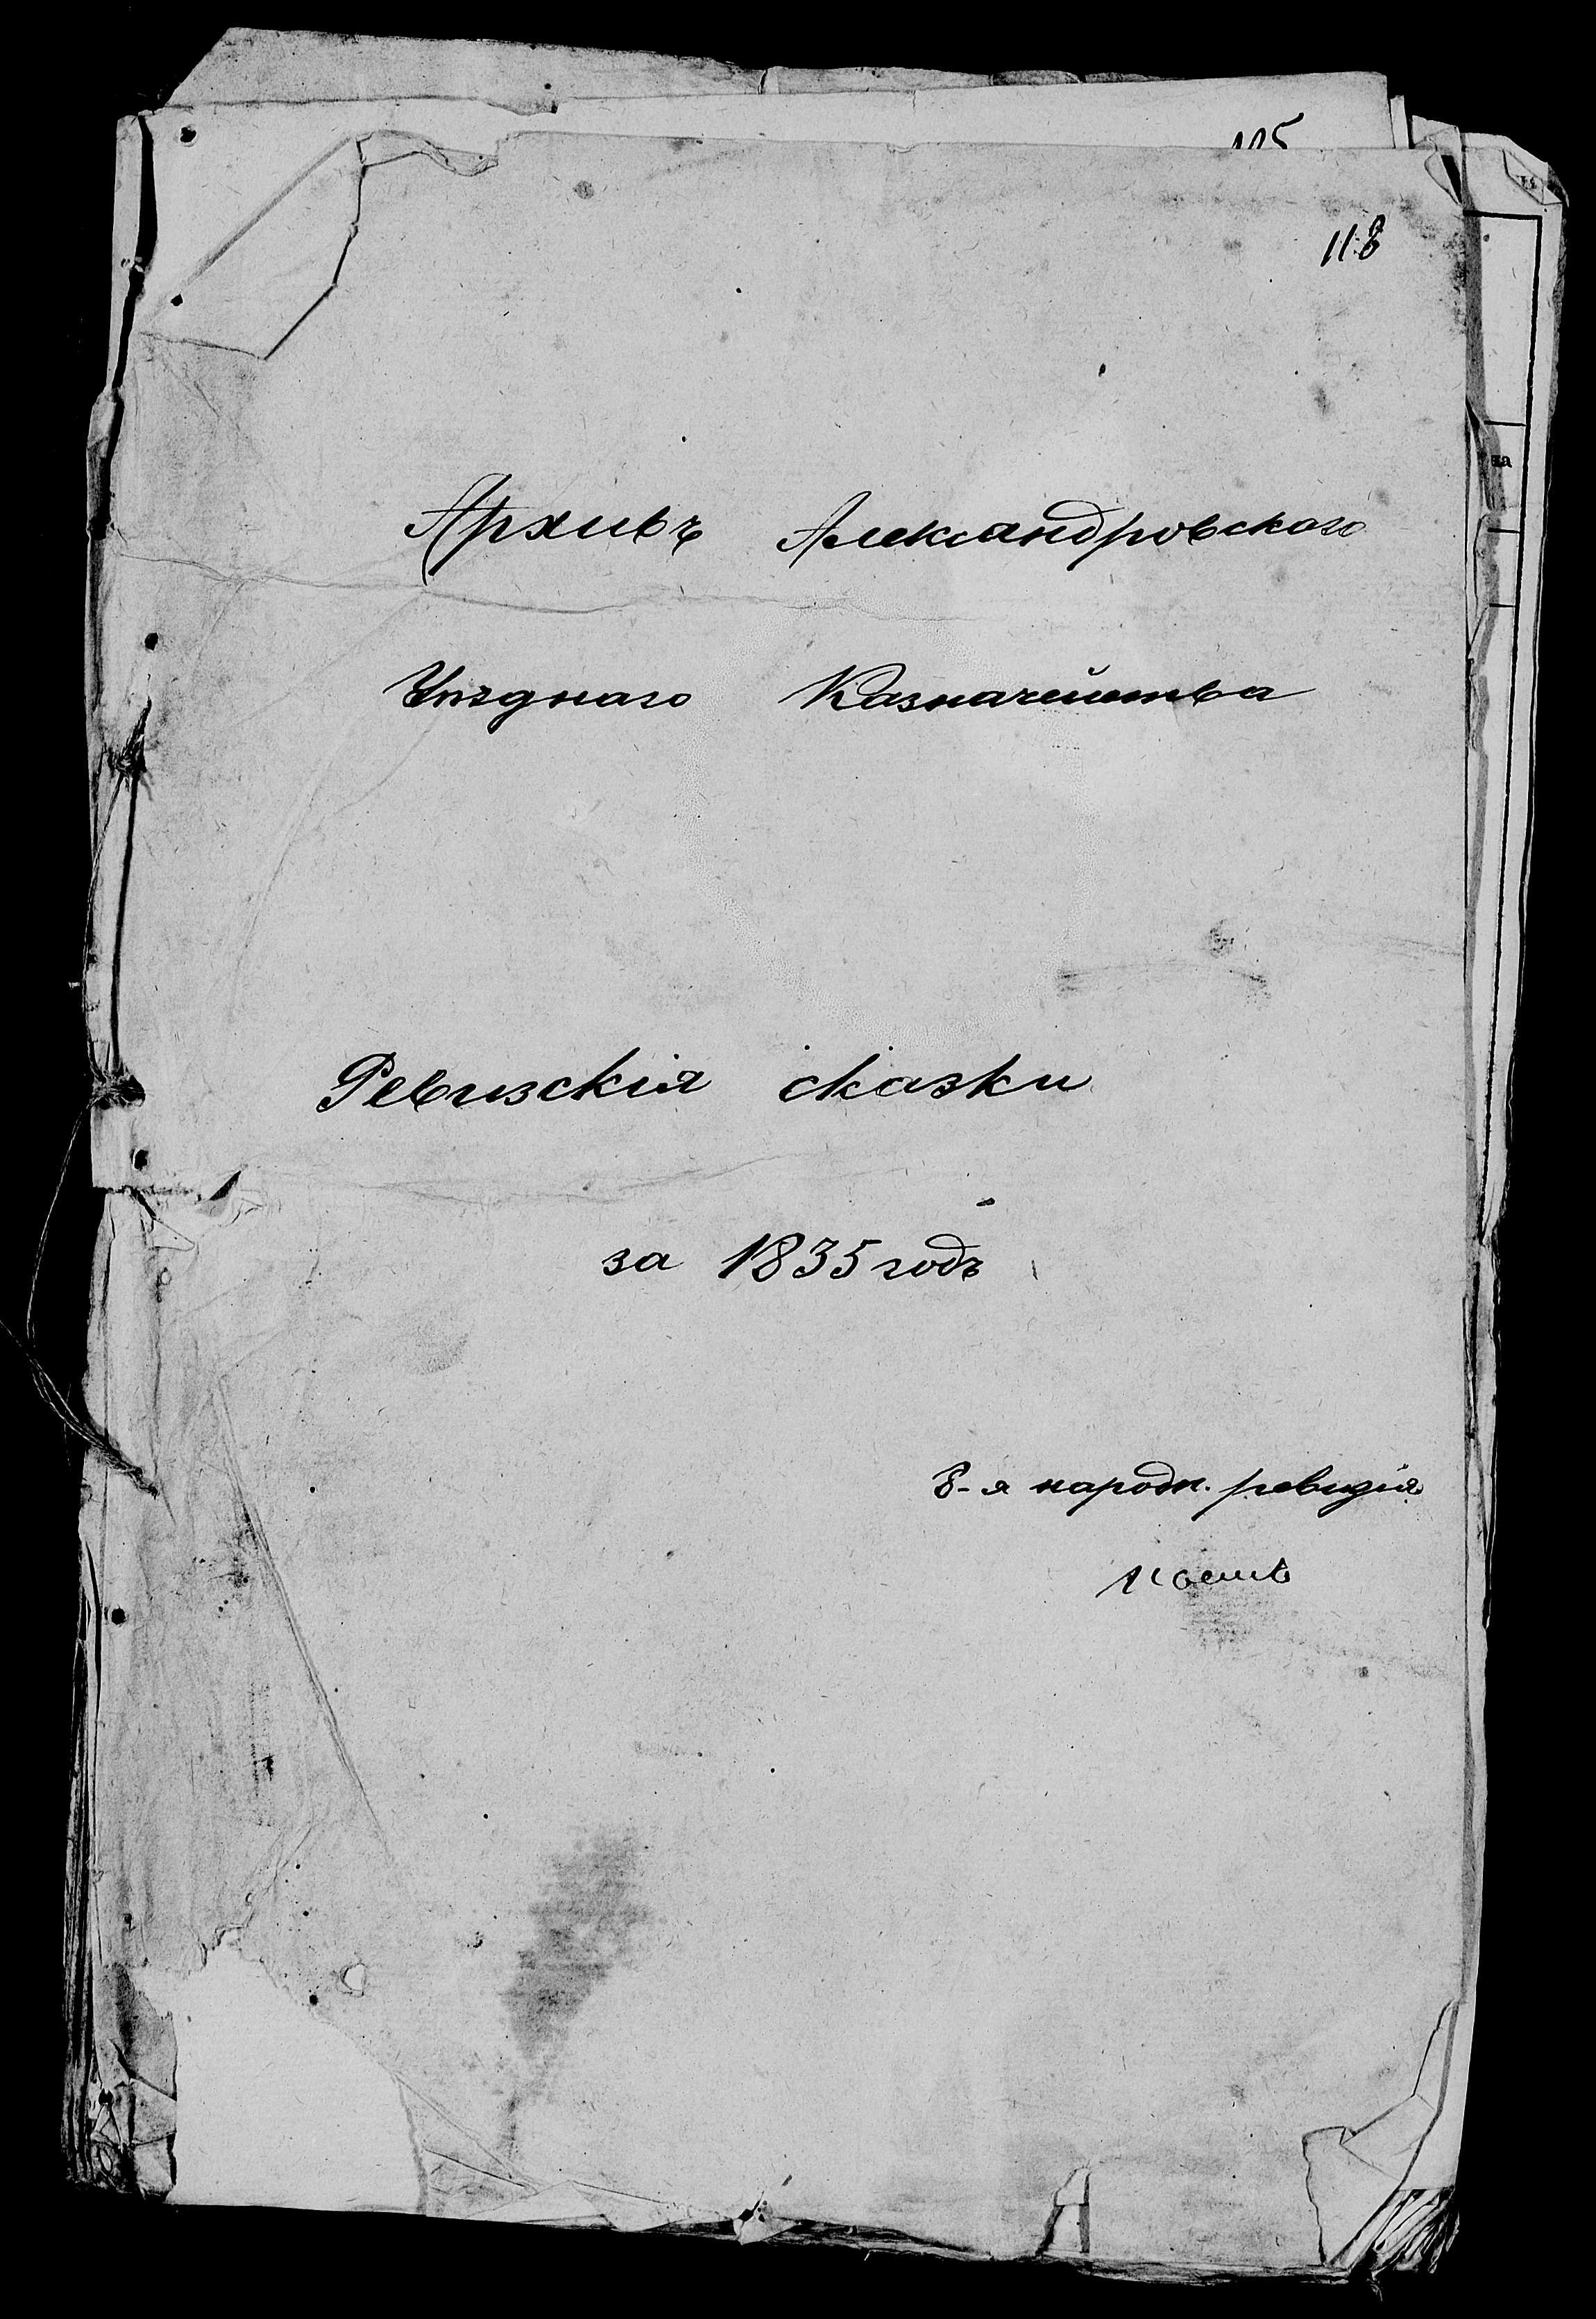 118
Архивъ Александровскаго
Уѣзднаго Казначейства
Ревизскія сказки
за 1835 годъ
8-я народн. ревизія
на